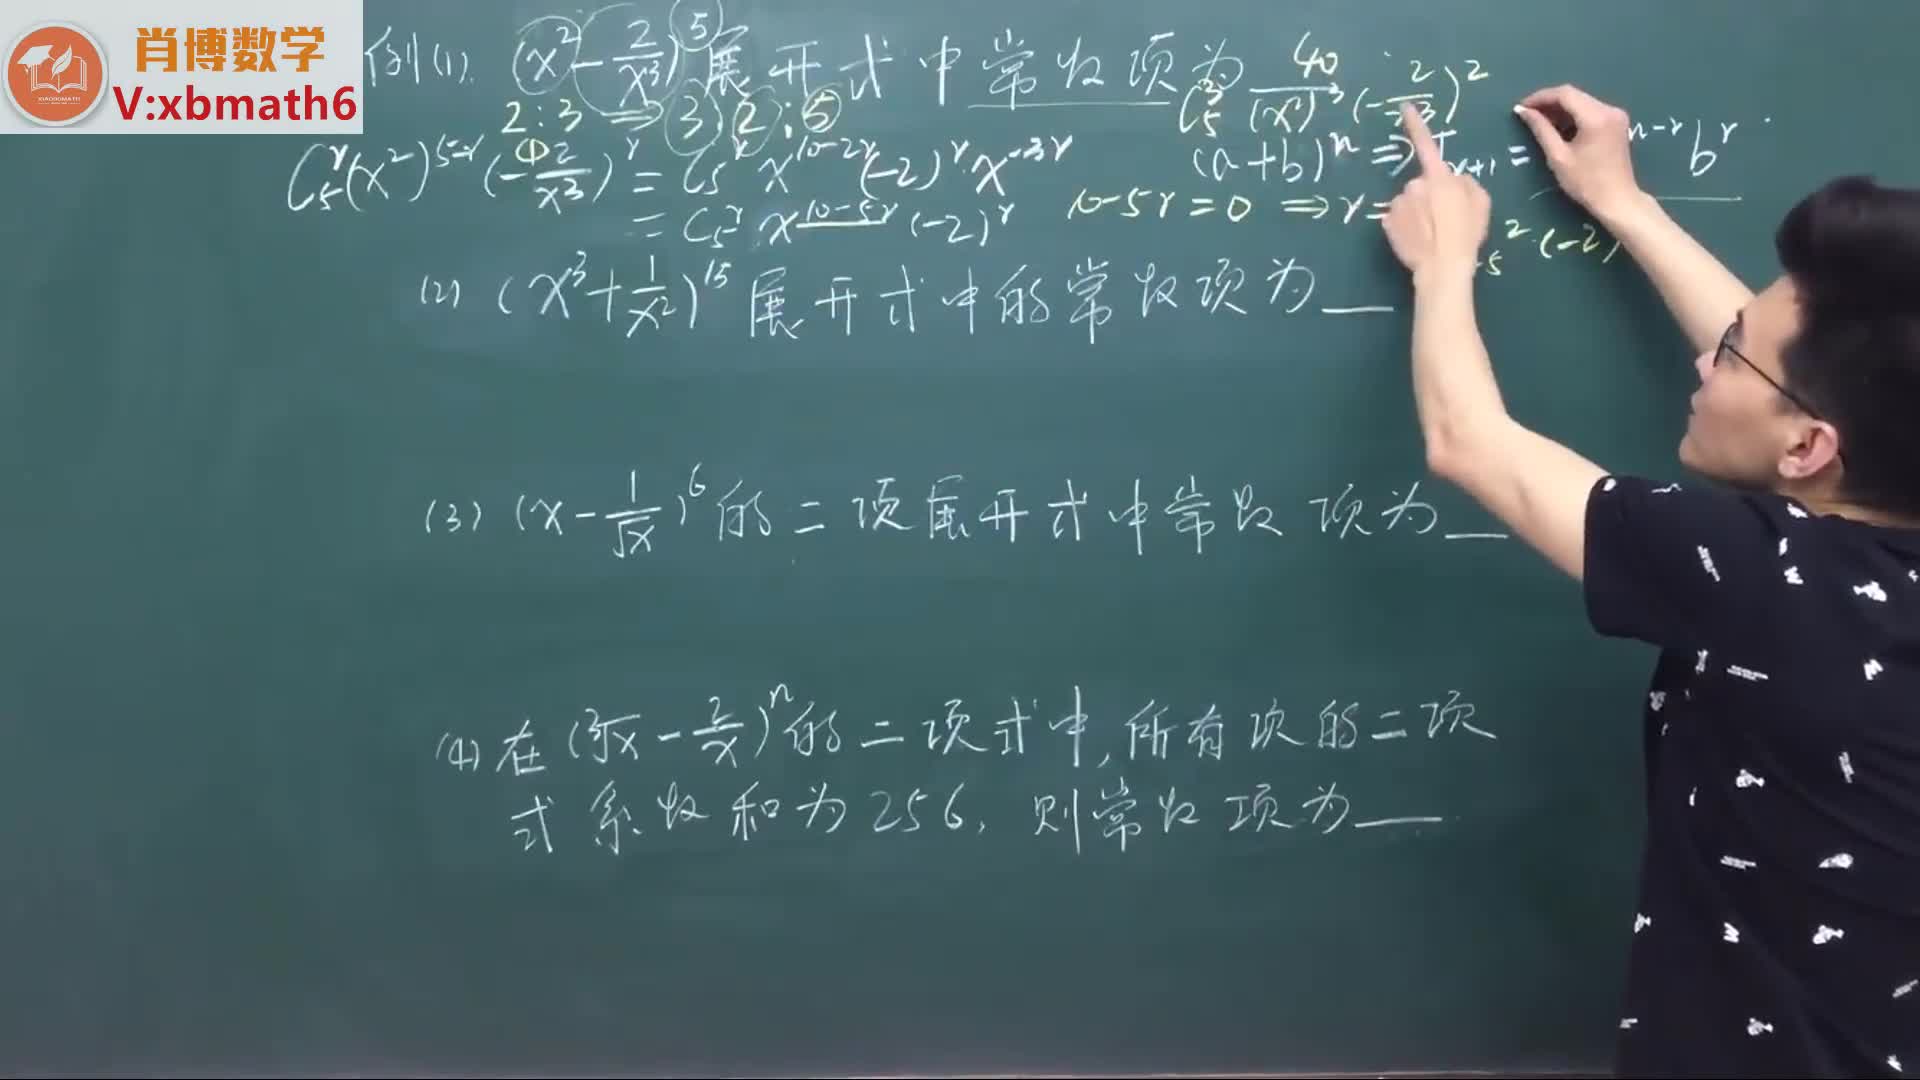 肖博数学
V:xbmath6
XIAOBOMATH
例(1). (x²-2/x³)⁵展开式中常数项为 40
2:3 ⇒ 3:2 :5 C₅³ (x²)³(-2/x³)²
C₅ʳ(x²)⁵⁻ʳ(-2/x³)ʳ = C₅ʳ x¹⁰⁻²ʳ(-2)ʳ·x⁻³ʳ (a+b)ⁿ ⇒ T r+1 = n-r bʳ
= C₅ʳ x¹⁰⁻⁵ʳ (-2)ʳ 10-5r=0 ⇒ r=
5 ² ·(-2)
(2) (x³+1/x²)¹⁵展开式中的常数项为__
(3) (x-1/√x)⁶的二项展开式中常数项为__
(4) 在(³√x-2/x)ⁿ的二项式中,所有项的二项
式系数和为256, 则常数项为___